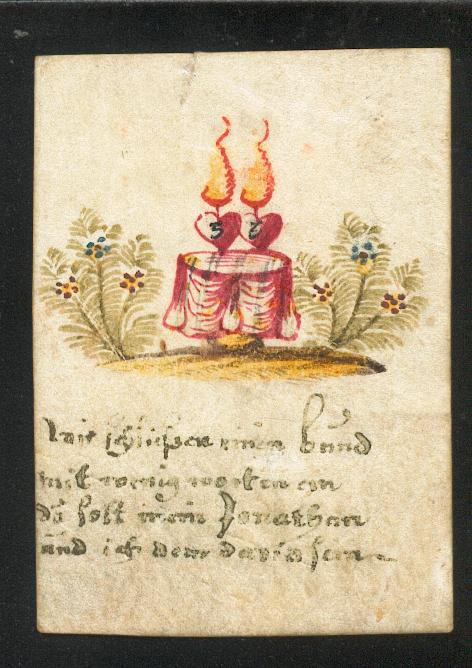 3 3
wir schliesen einen bund
mit wenig worten ein
du solt mein Jonathan
und ich dein david sein